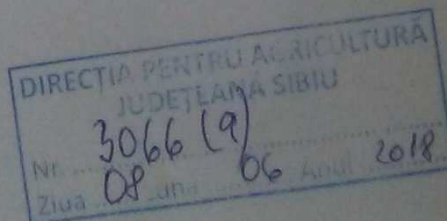 DIRECȚIA PENTRU AGRICULTURĂ
JUDEȚEANĂ SIBIU
Nr. 3066 (9)
Ziua 08 Luna 06 Anul 2018